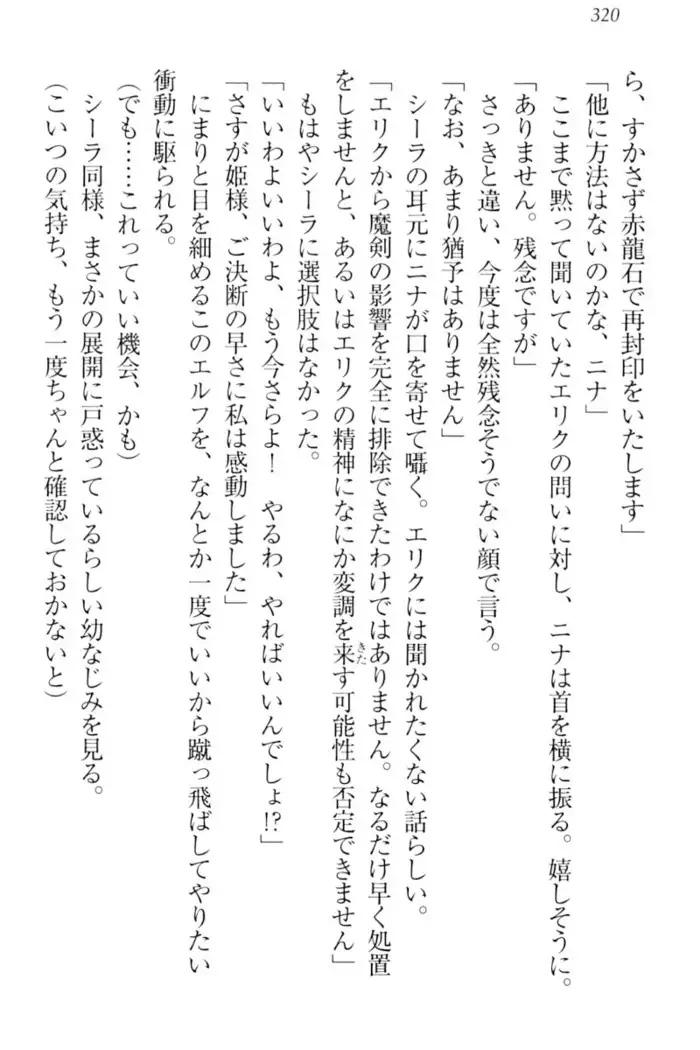 320
ら、すかさず赤龍石で再封印をいたします」
「他に方法はないのかな、ニナ」
ここまで黙って聞いていたエリクの問いに対し、ニナは首を横に振る。嬉しそうに。
「ありません。残念ですが」
さっきと違い、今度は全然残念そうでない顔で言う。
「なお、あまり猶予はありません」
シーラの耳元にニナが口を寄せて囁く。エリクには聞かれたくない話らしい。
「エリクから魔剣の影響を完全に排除できたわけではありません。なるだけ早く処置
をしませんと、あるいはエリクの精神になにか変調を来す可能性も否定できません」
きた
もはやシーラに選択肢はなかった。
「いいわよいいわよ、もう今さらよ！　やるわ、やればいいんでしょ!?」
「さすが姫様、ご決断の早さに私は感動しました」
にまりと目を細めるこのエルフを、なんとか一度でいいから蹴っ飛ばしてやりたい
衝動に駆られる。
(でも……これっていい機会、かも)
シーラ同様、まさかの展開に戸惑っているらしい幼なじみを見る。
(こいつの気持ち、もう一度ちゃんと確認しておかないと)